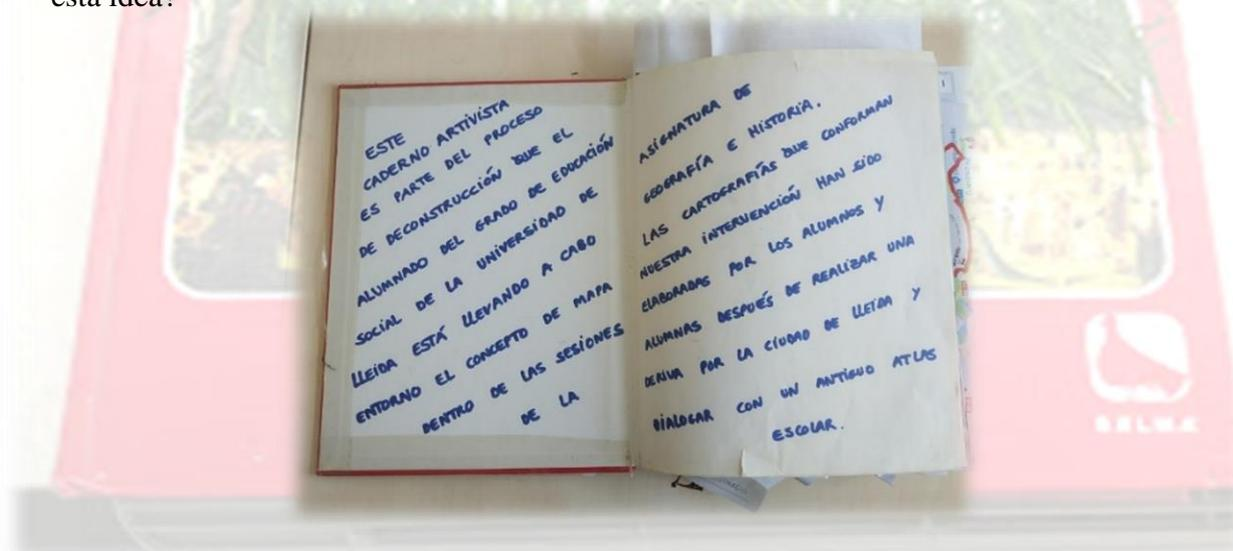 esta idea?
ESTE
CADERNO ARTIVISTA
ES PARTE DEL PROCESO
DE DECONSTRUCCIÓN QUE EL
ALUMNADO DEL GRADO DE EDUCACIÓN
SOCIAL DE LA UNIVERSIDAD DE
LLEIDA ESTÁ LLEVANDO A CABO
ENTORNO EL CONCEPTO DE MAPA
DENTRO DE LAS SESIONES
DE LA
ASIGNATURA DE
GEOGRAFÍA E HISTORIA.
LAS CARTOGRAFÍAS QUE CONFORMAN
NUESTRA INTERVENCIÓN HAN SIDO
ELABORADAS POR LOS ALUMNOS Y
ALUMNAS DESPUÉS DE REALIZAR UNA
DERIVA POR LA CIUDAD DE LLEIDA Y
DIALOGAR CON UN ANTIGUO ATLAS
ESCOLAR.
SALMA